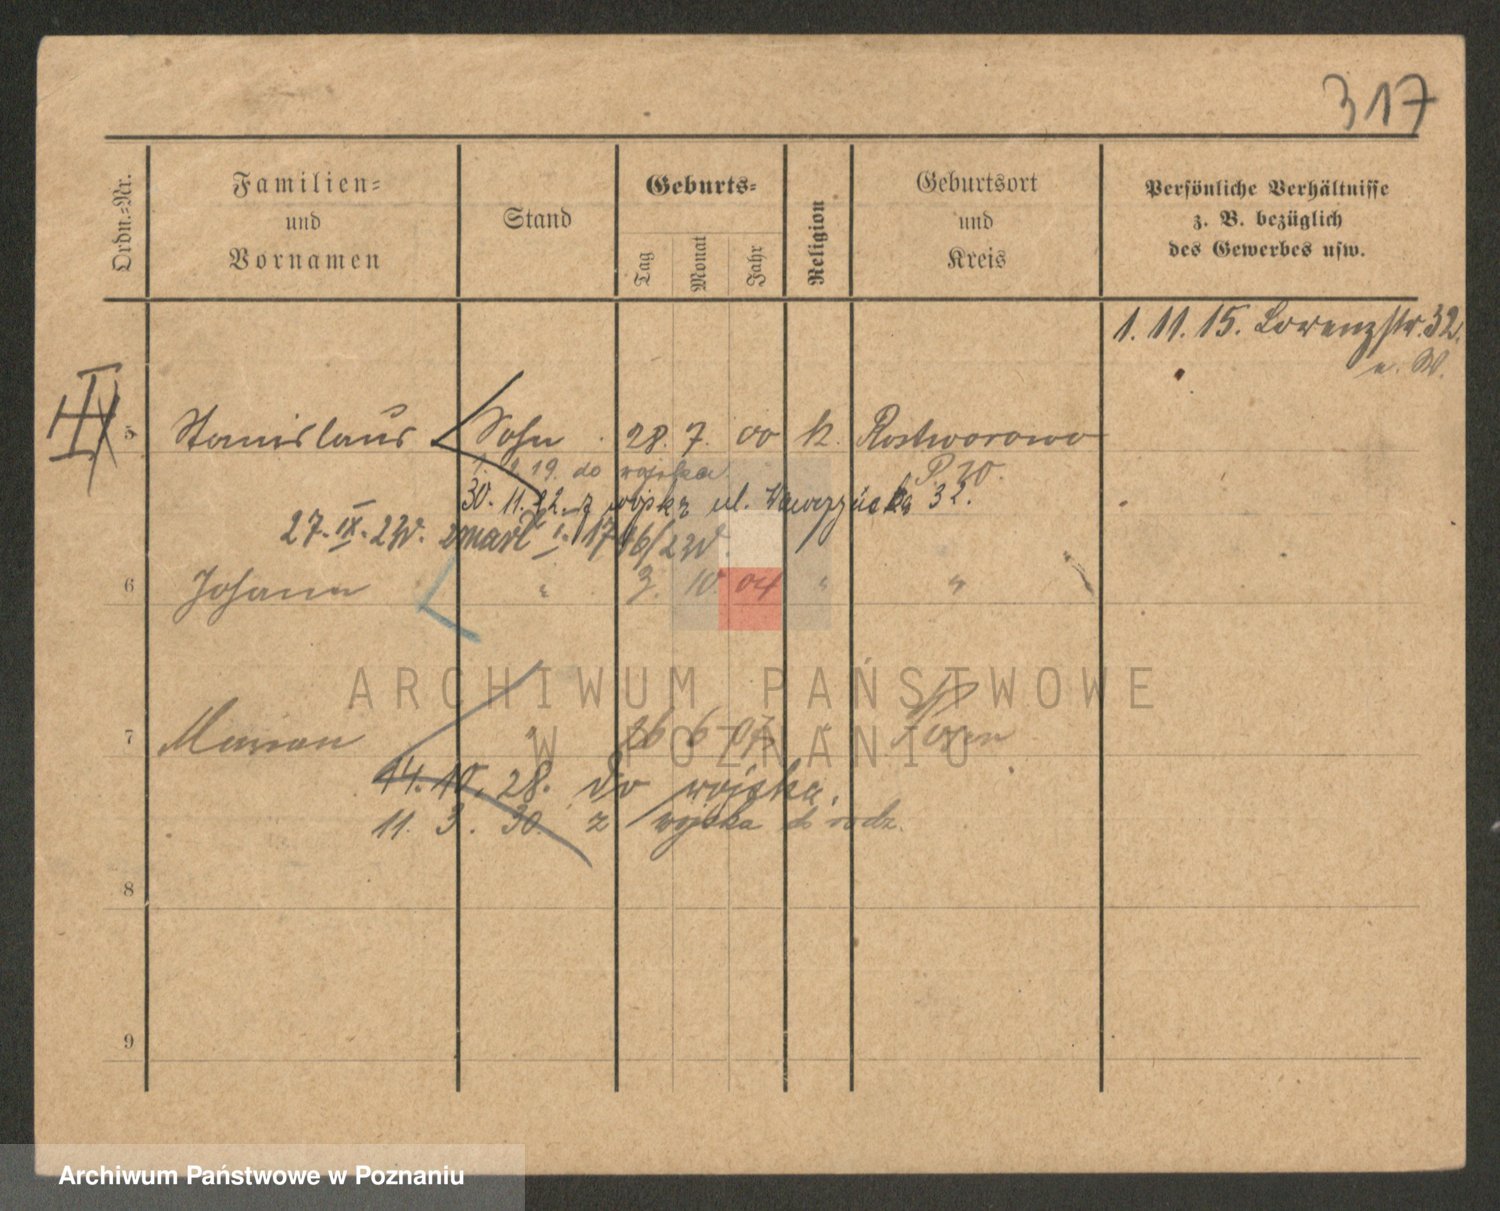 317
Ordn.=Nr.
Familien=
und
Vornamen
Stand
Geburts=
Tag
Monat
Jahr
Religion
Geburtsort
und
Kreis
Persönliche Verhältnisse
z. B. bezüglich
des Gewerbes usw.
1. 11. 15. Lorenzstr. 32.
5 Stanislaus Sohn 28. 7. 00 k. Rostworowo
19. do wojska P. W.
30. 11. 22. z wojska ul. Wawrzyńca 32.
27. IX. 23. zmarł
6 Johann " 3. 10. 04 " "
ARCHIWUM PAŃSTWOWE
W POZNANIU
7 Marian " 26 6 07 " Posen
14. 10. 28. do wojska,
11. 3. 30. z wojska do rodz.
8
9
Archiwum Państwowe w Poznaniu